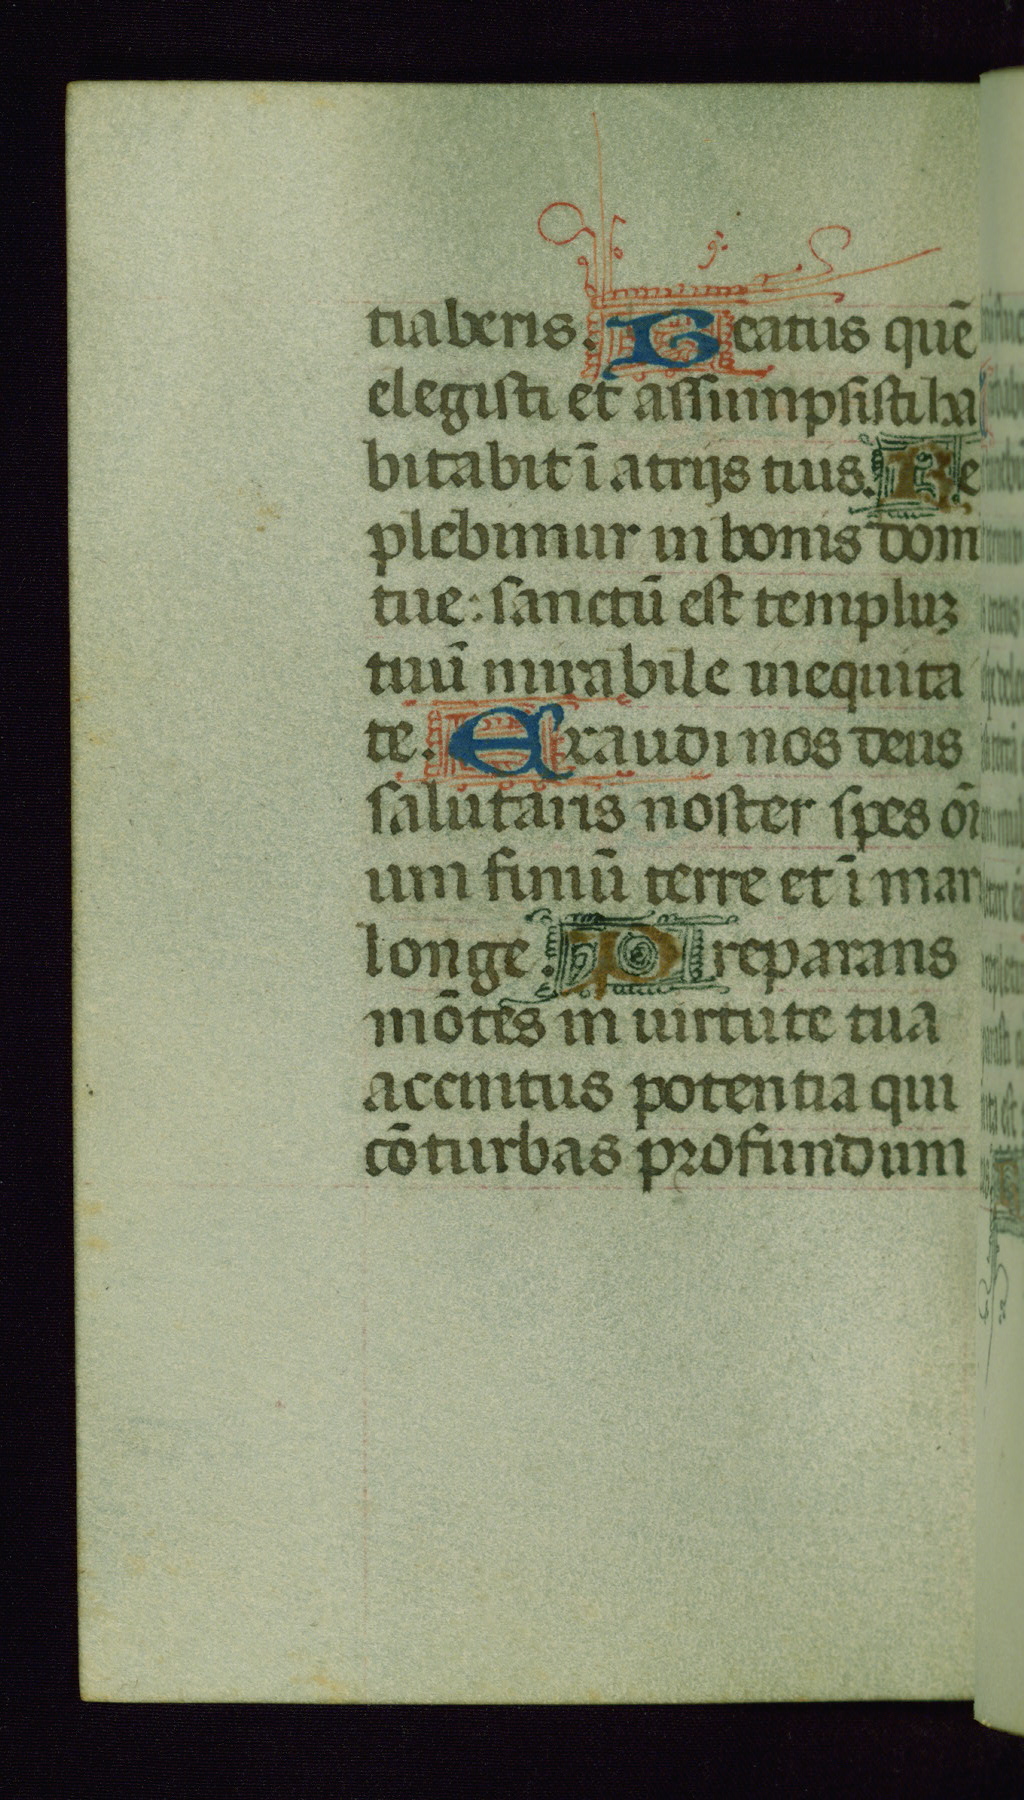 tiaberis. Beatus quē
elegisti et assumpsisti ha
bitabit ī atrijs tuis. Re
plebimur in bonis dom
tue: sanctū est templuꝫ
tuū mirabile inequita
te. Exaudi nos deus
salutaris noster spes om̄
um finiū terre et ī mar
longe. Preparans
mōtes in uirtute tua
accintus potentia qui
cōturbas profundum